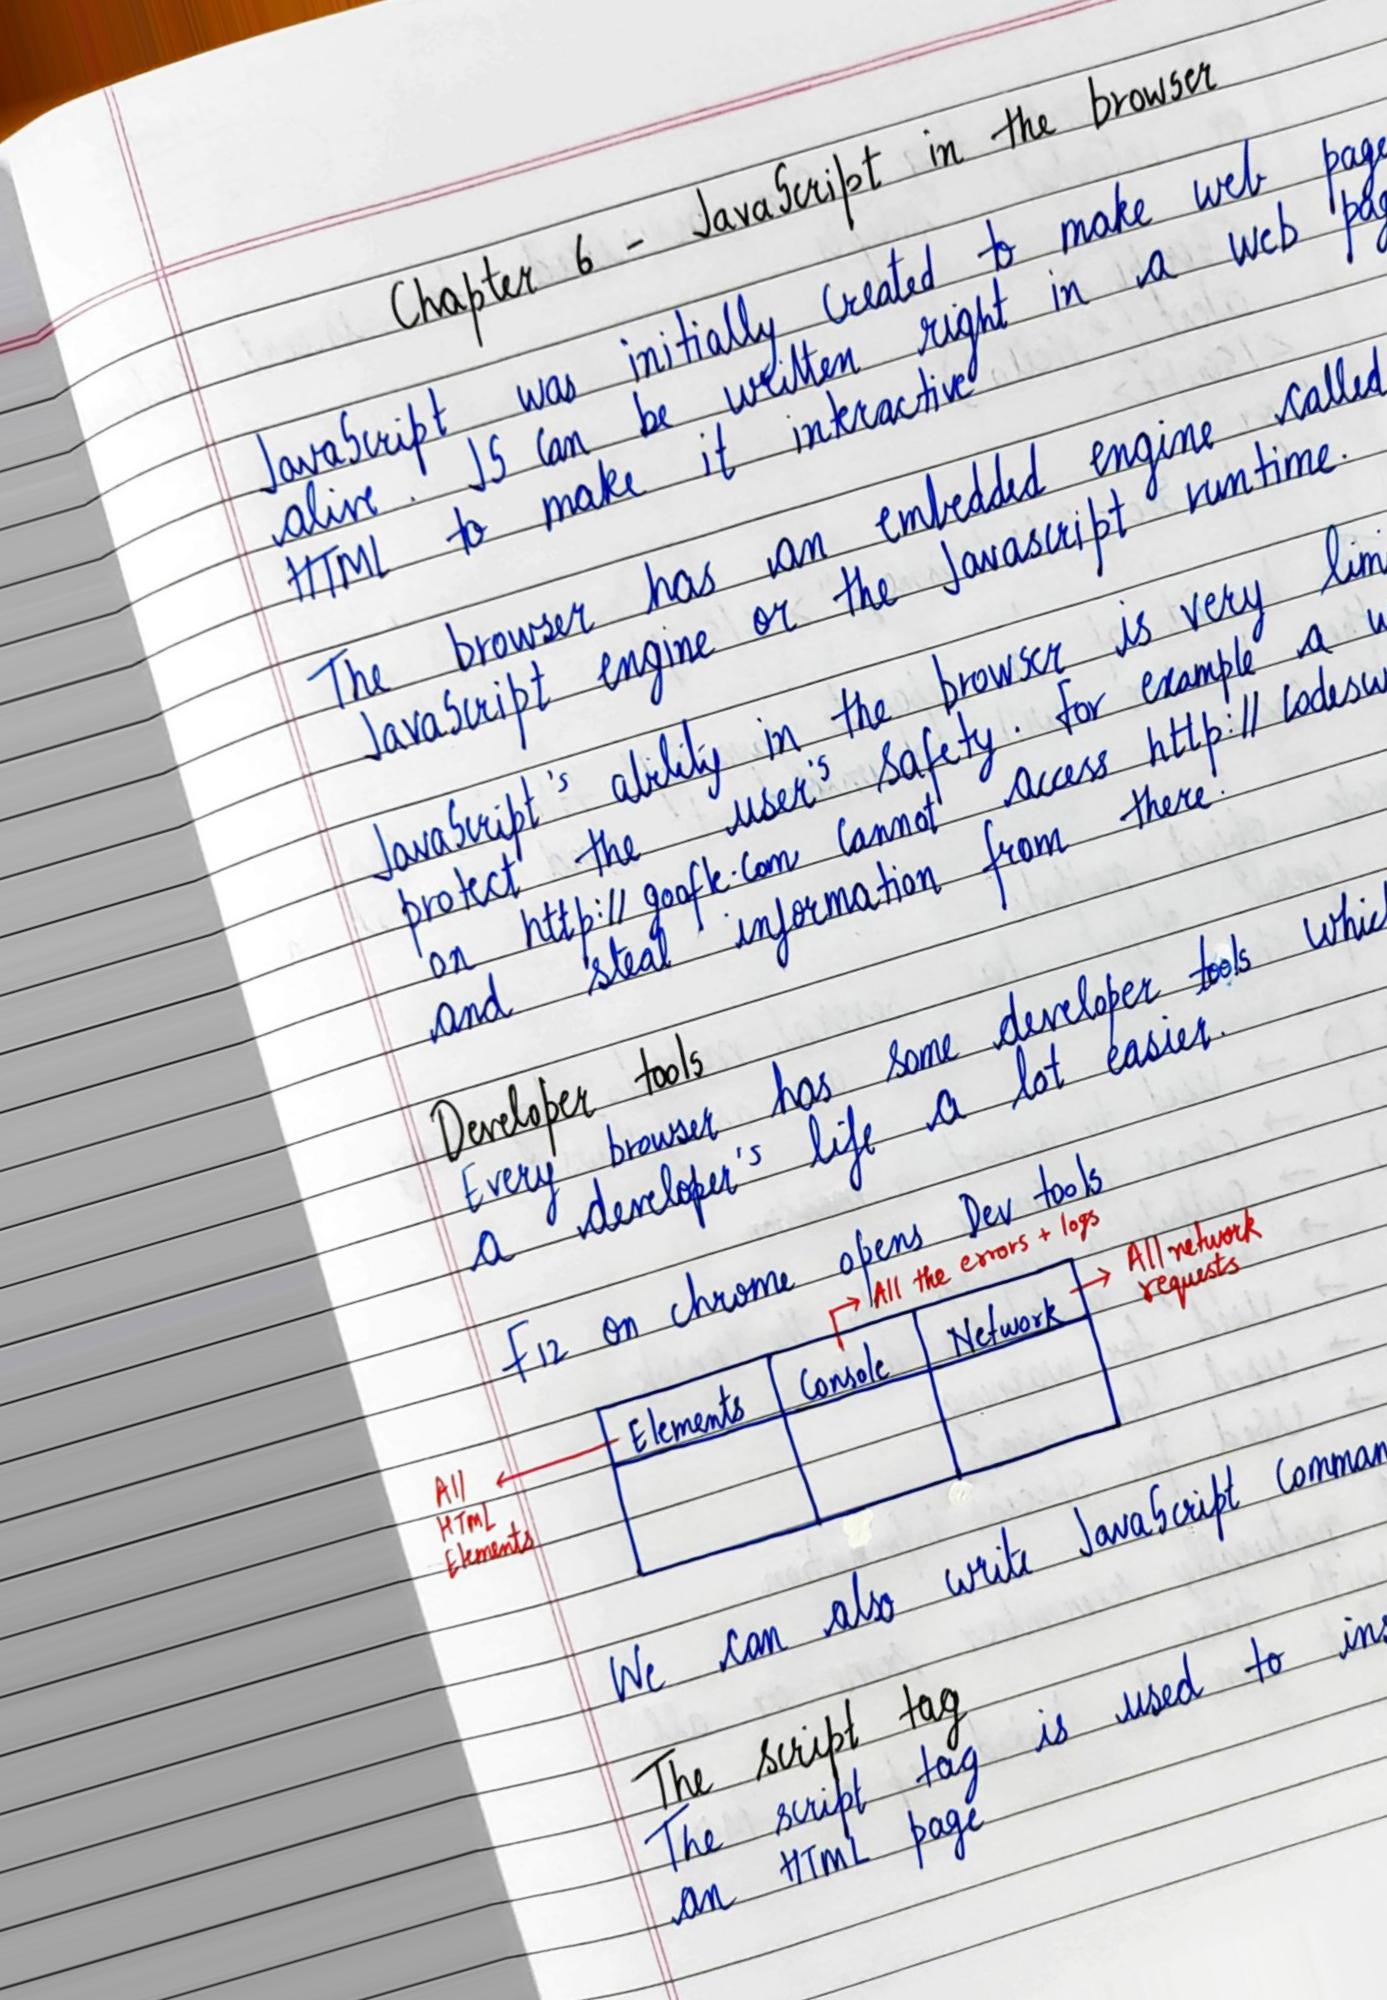 Chapter 6 - JavaScript in the browser
JavaScript was initially created to make web page
alive. JS can be written right in a web pag
HTML to make it interactive
The browser has an embedded engine called
JavaScript engine or the Javascript runtime.
JavaScript's ability in the browser is very lim
protect the user's safety. For example a w
on http://goofle.com cannot access http://codesw
and steal information from there.
Developer tools
Every browser has some developer tools whic
a developer's life a lot easier.
F12 on chrome opens Dev tools
All the errors + logs
All network
requests
Elements Console Network
All
HTML
Elements
We can also write JavaScript comman
The script tag
The script tag is used to ins
an HTML page